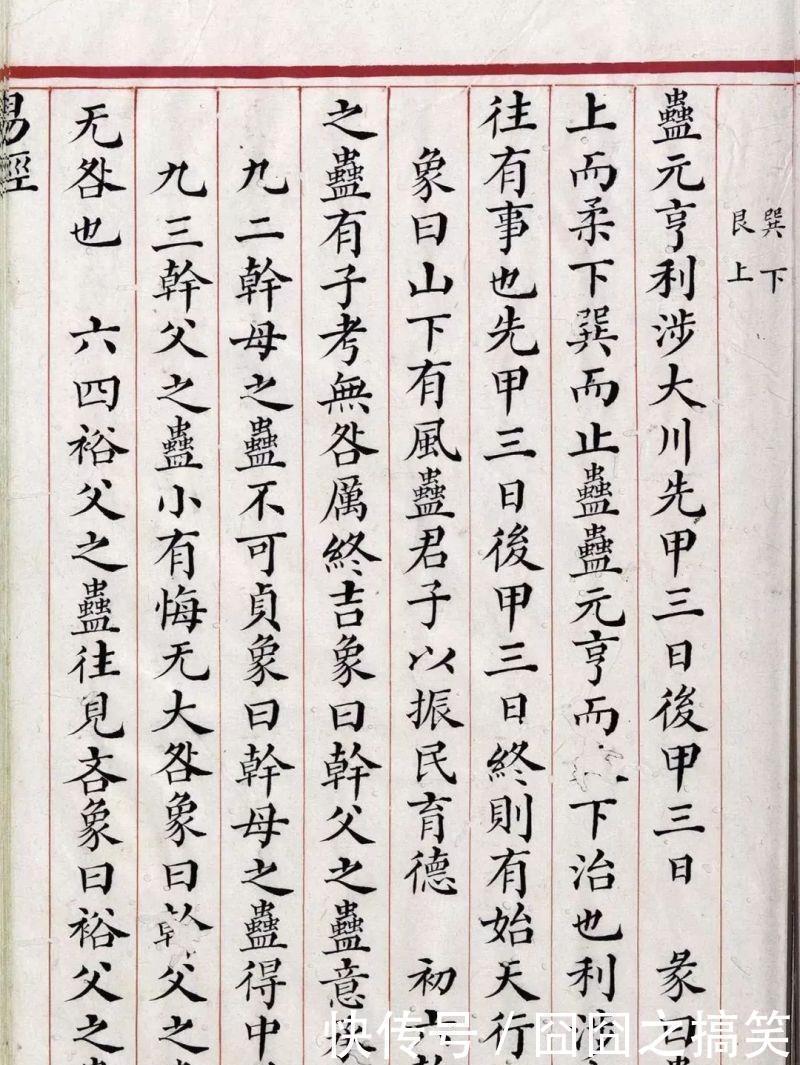 巽下
艮上
蠱元亨利涉大川先甲三日後甲三日　彖曰蠱
上而柔下巽而止蠱蠱元亨而下治也利涉
往有事也先甲三日後甲三日終則有始天行
象曰山下有風蠱君子以振民育德　初六幹
之蠱有子考無咎厲終吉象曰幹父之蠱意
九二幹母之蠱不可貞象曰幹母之蠱得中
九三幹父之蠱小有悔无大咎象曰幹父之
无咎也　六四裕父之蠱往見吝象曰裕父之
易經
快传号 / 囧囧之搞笑